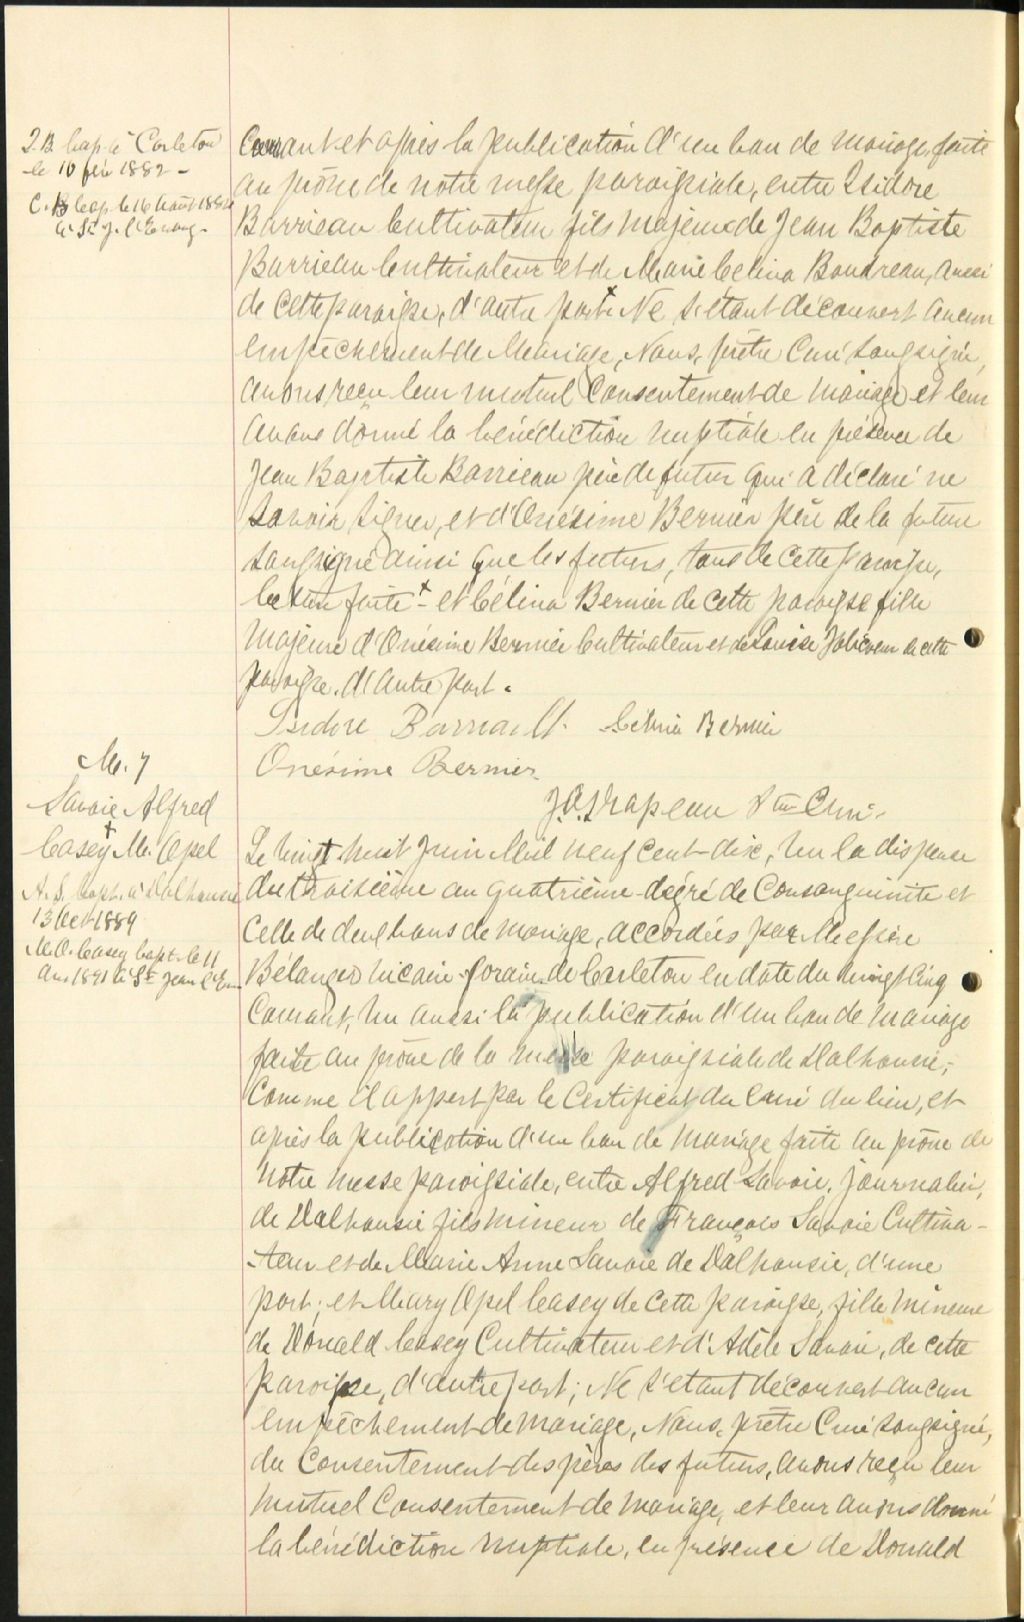 I.B. bap. à Carleton
le 10 fév 1882 -
C. B bap. le 16 Août 188
à St J. l'Evang.
Courant et après la publication d'un ban de mariage faite
au prône de notre messe paroissiale, entre Isidore
Barrieau Cultivateur fils majeur de Jean Baptiste
Barrieau Cultivateur et de Marie Celina Boudreau, aussi
de cette paroisse, d'autre part + Ne s'étant découvert aucun
empêchement de Mariage, Nous, prêtre Curé soussigné,
avons reçu leur mutuel Consentement de mariage et leur
avons donné la bénédiction nuptiale en présence de
Jean Baptiste Barrieau père du futur qui a déclaré ne
savoir signer, et d'Onésime Bernier père de la future
soussigné ainsi que les futurs, tous de cette paroisse,
lecture faite + et Célina Bernier de cette paroisse fille
majeure d'Onésime Bernier Cultivateur et de Louise Jolicoeur de cette
paroisse. d'autre part.
Isidore Barriault. Célina Bernier
Onésime Bernier
J.O. Drapeau Ptre Curé.
M. 7
Savoie Alfred
+
Casey M. Opel
A. S. bapt. à Dalhousie
13 Oct 1889
M.O. Casey bapt. le 11
1891 à St Jean l'Ev
Le vingt huit Juin Mil neuf cent dix, Vu la dispense
du troisième au quatrième degré de Consanguinité et
celle de deux bans de mariage, accordées par Messire
Bélanger vicaire forain de Carleton en date du vingt cinq
Courant, Vu aussi la publication d'un ban de mariage
faite au prône de la messe paroissiale de Dalhousie,
Comme il appert par le Certificat du Curé du lieu, et
après la publication d'un ban de mariage faite au prône de
notre messe paroissiale, entre Alfred Savoie, journalier,
de Dalhousie fils mineur de François Savoie Cultiva-
teur et de Marie Anne Savoie de Dalhousie, d'une
part; et Mary Opel Casey de cette paroisse, fille mineure
de Donald Casey Cultivateur et d'Adèle Savoie, de cette
paroisse, d'autre part; Ne s'étant découvert aucun
empêchement de mariage, Nous, prêtre Curé soussigné,
du Consentement des pères des futurs, avons reçu leur
mutuel Consentement de mariage, et leur avons donné
la bénédiction nuptiale, en présence de Donald